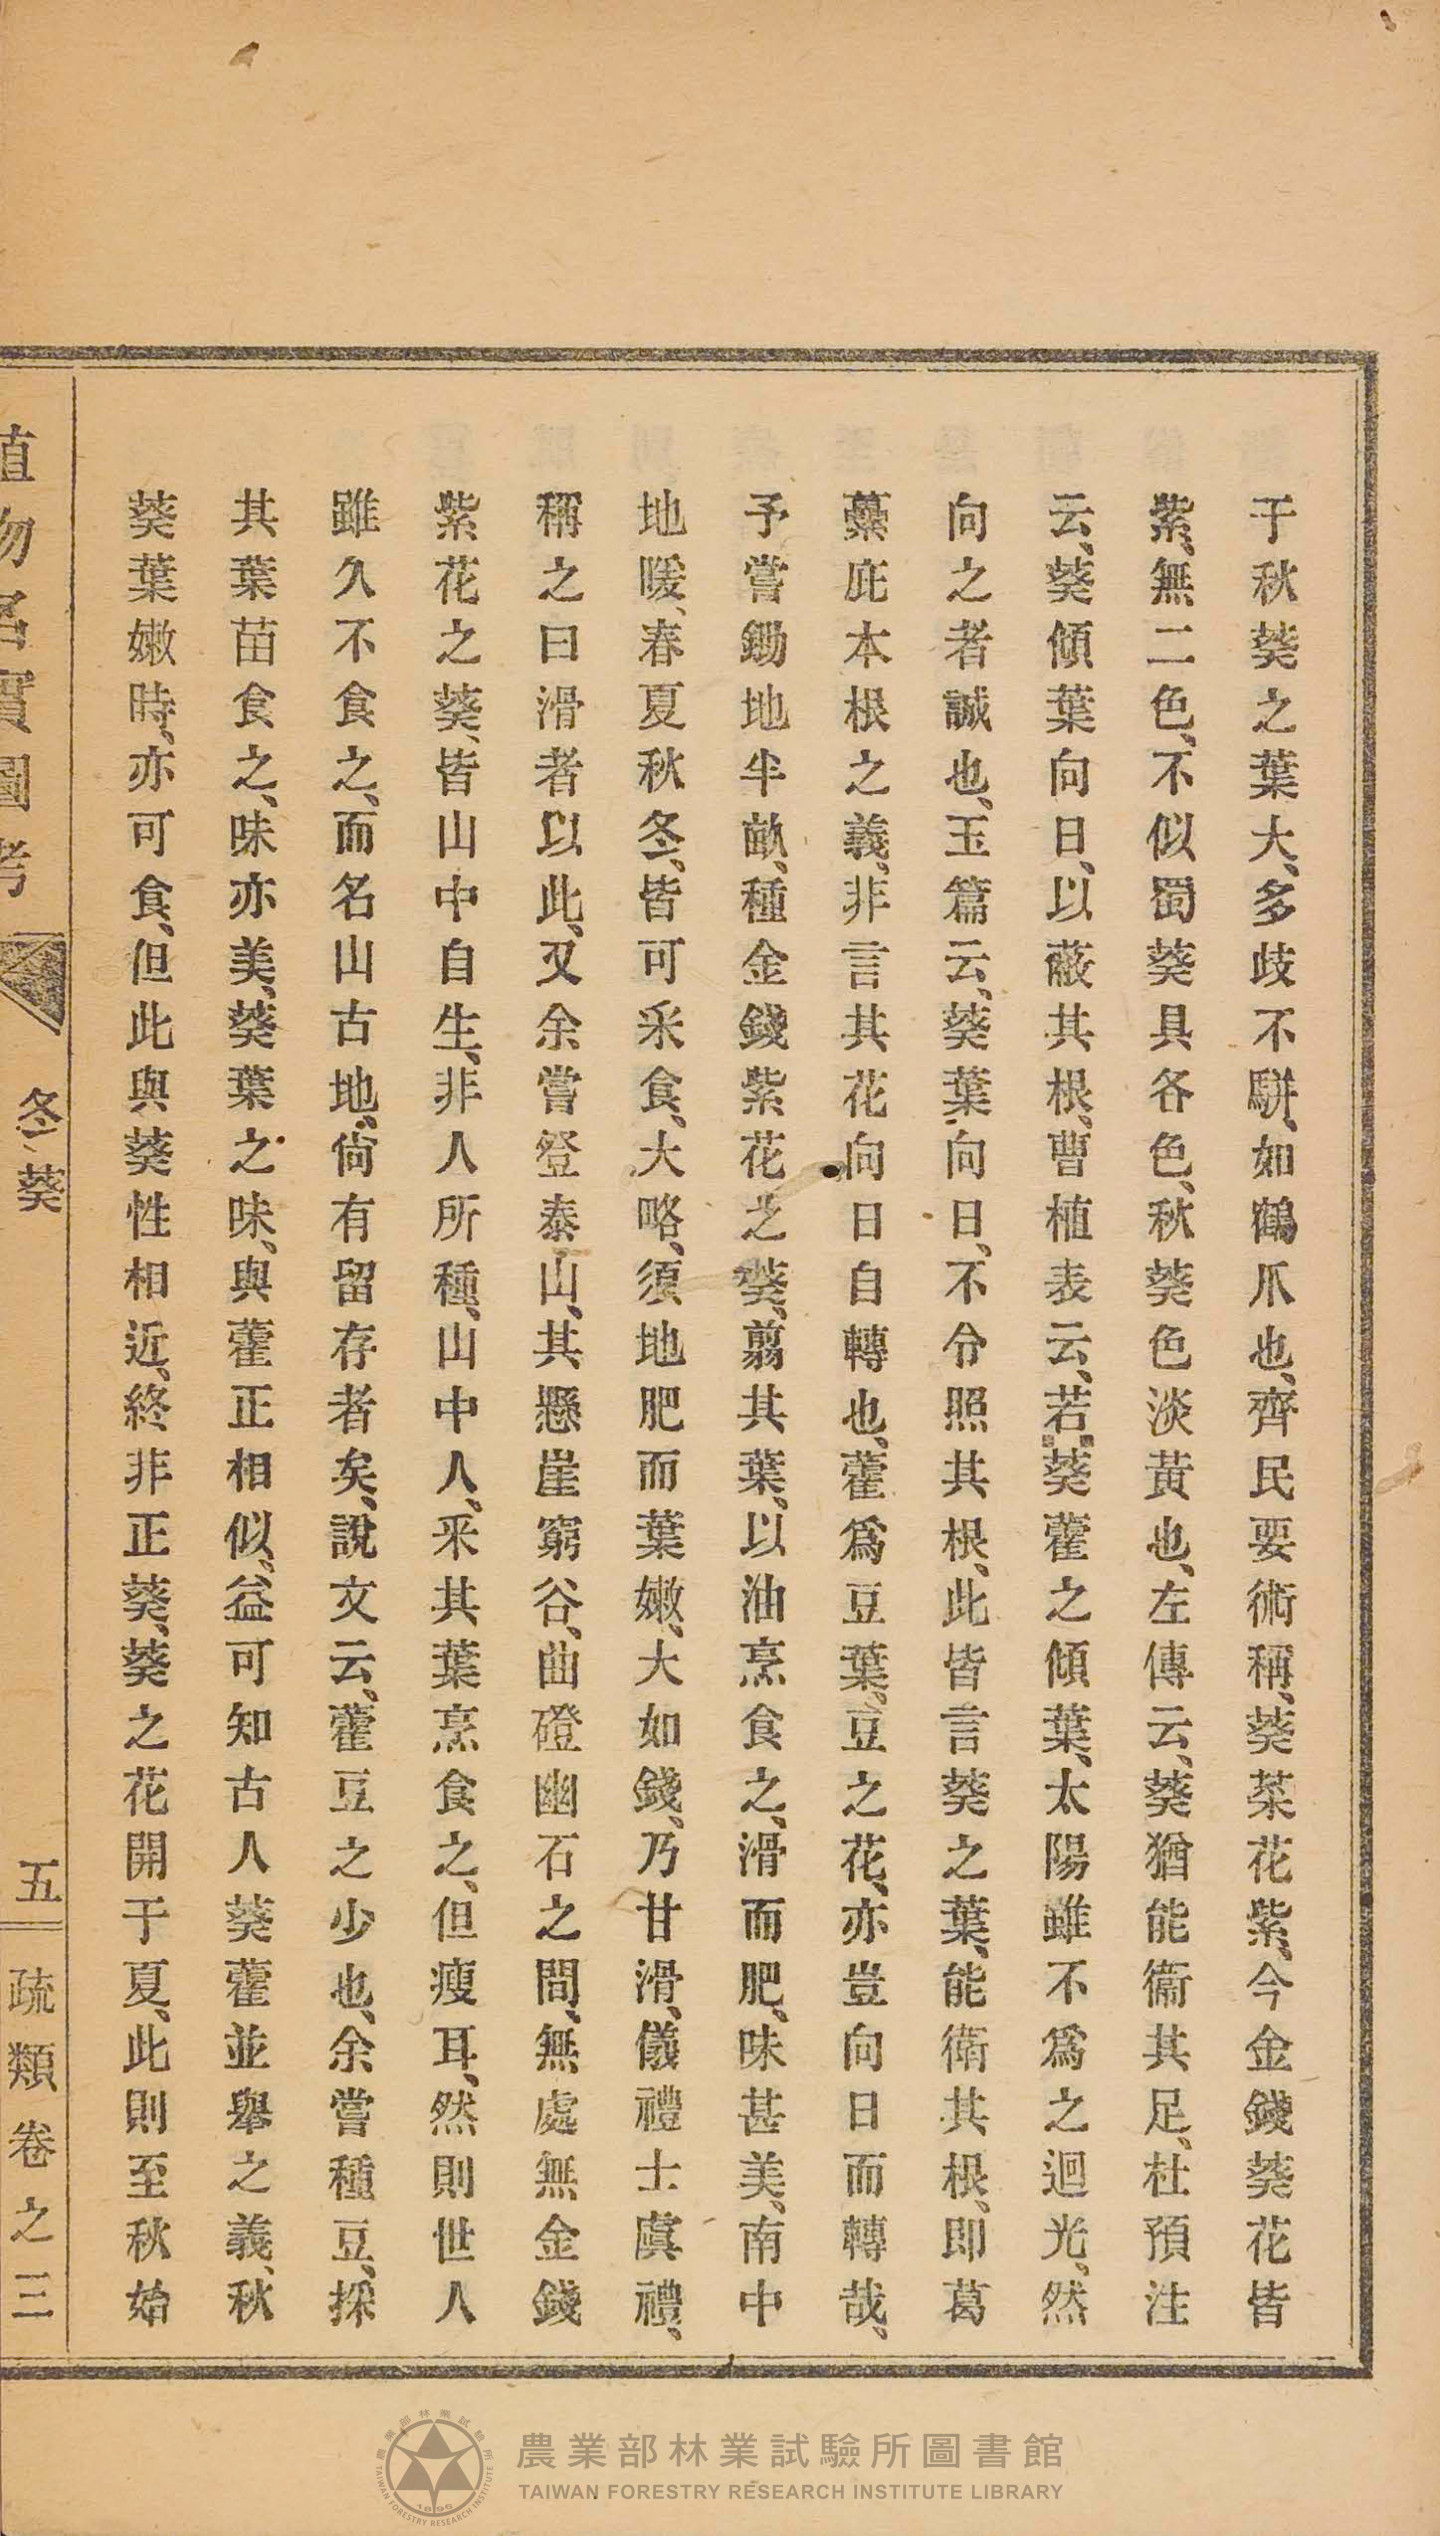 于秋葵之葉大、多歧不駢、如鶴爪也、齊民要術稱、葵菜花紫、今金錢葵花皆
紫、無二色、不似蜀葵具各色、秋葵色淡黃也、左傳云、葵猶能衞其足、杜預注
云、葵傾葉向日、以蔽其根、曹植表云、若葵藿之傾葉、太陽雖不爲之迴光、然
向之者誠也、玉篇云、葵葉向日、不令照其根、此皆言葵之葉、能衛其根、即葛
藟庇本根之義、非言其花向日自轉也、藿爲豆葉、豆之花、亦豈向日而轉哉、
予嘗鋤地半畝、種金錢紫花之葵、翦其葉、以油烹食之、滑而肥、味甚美、南中
地暖、春夏秋冬、皆可采食、大略、須地肥而葉嫩、大如錢、乃甘滑、儀禮士虞禮、
稱之曰滑者以此、又余嘗登泰山、其懸崖窮谷、曲磴幽石之間、無處無金錢
紫花之葵、皆山中自生、非人所種、山中人、采其葉烹食之、但瘦耳、然則世人
雖久不食之、而名山古地、尙有留存者矣、說文云、藿豆之少也、余嘗種豆、採
其葉苗食之、味亦美、葵葉之味、與藿正相似、益可知古人葵藿並舉之義、秋
葵葉嫩時、亦可食、但此與葵性相近、終非正葵、葵之花開于夏、此則至秋始
植物名實圖考 冬葵 五 疏類卷之三
農業部林業試驗所圖書館
TAIWAN FORESTRY RESEARCH INSTITUTE LIBRARY
農業部林業試驗所
TAIWAN FORESTRY RESEARCH INSTITUTE
1896